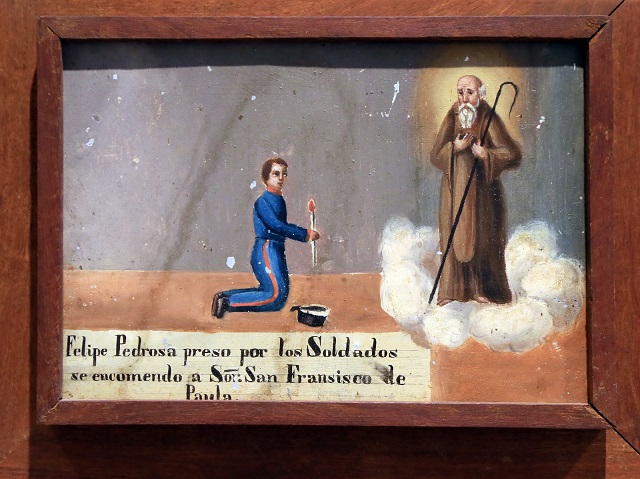 Felipe Pedrosa preso por los Soldados
se encomendo a Sōr. San Fransisco de
Paula